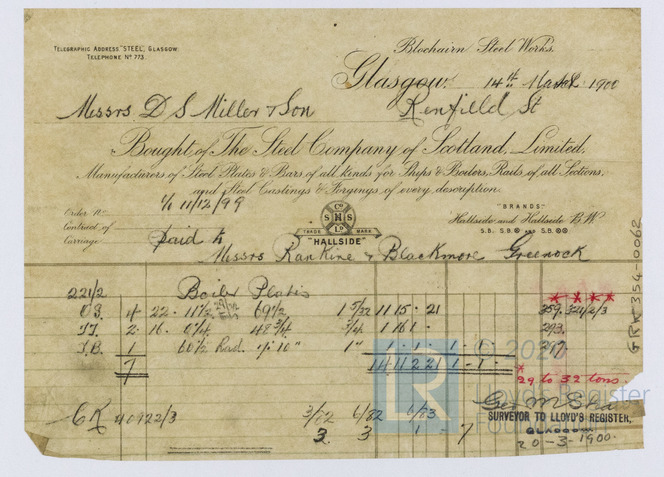 TELEGRAPHIC ADDRESS "STEEL", GLASGOW.
TELEPHONE Nº 773.
Blochairn Steel Works.
Glasgow, 14th March 1900
Messrs D S Miller & Son
Renfield St
Bought of The Steel Company of Scotland, Limited,
Manufacturers of Steel Plates & Bars of all kinds for Ships & Boilers, Rails of all Sections,
and Steel Castings & Forgings of every description.
Order No
11/12/99
Contract of
Carriage
paid to
Cº
S H S
Lº
TRADE MARK
"HALLSIDE"
"BRANDS"
Hallside and Hallside B.W.
Messrs Rankine & Blackmore Greenock
221/2
Boiler Plates
4 22 11½ 69½ 1 5/32 11 15 21
2 16 48¾ ¾ 1 16 1
293
1 60½ Rad. 10" 1" 1 1 1 1
7 14 11 2 21 1 - 1 -
29 to 32 tons.
© 202
LR
Lloyd's Register
Foundation
SURVEYOR TO LLOYD'S REGISTER,
GLASGOW.
20-3-1900.
3 3 1 - 7
GRK354-0062